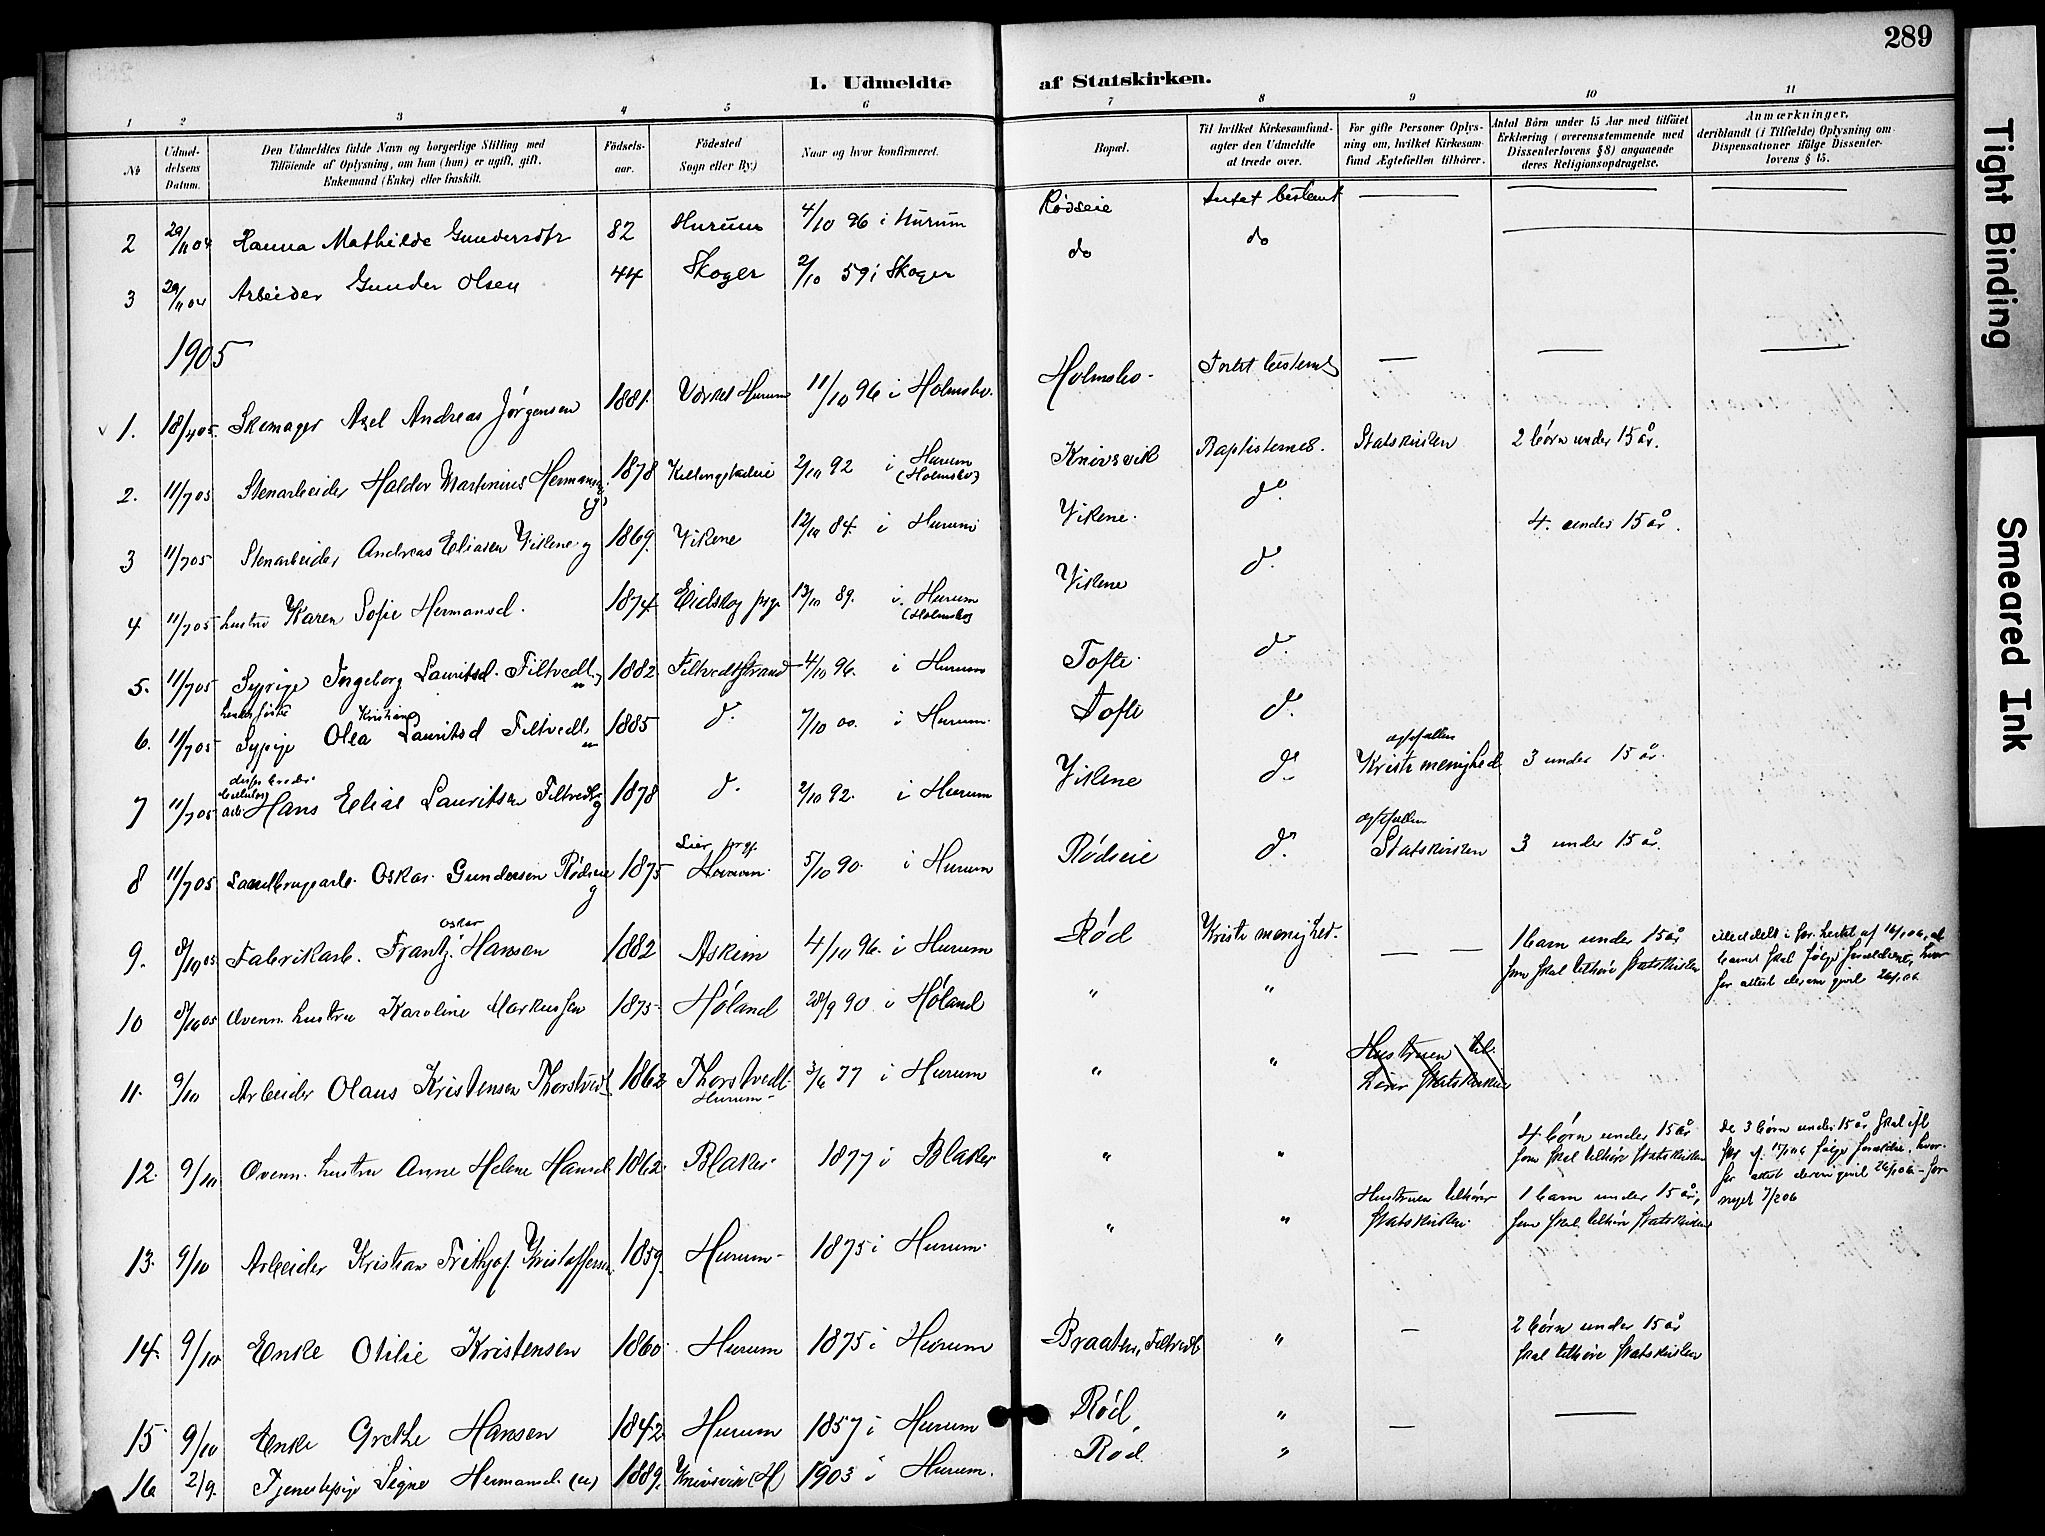 289
I. Udmeldte af Statskirken.
1 2 3 4 5 6 7 8 9 10 11
No
Udmel-
delsens
Datum.
Den Udmeldtes fulde Navn og borgerlige Stilling med
Tilföiende af Oplysning, om han (hun) er ugift, gift.
Enkemand (Enke) eller fraskilt.
Födsels-
aar.
Födested
Sogn eller By.)
Naar og hvor konfirmeret.
Bopæl.
Til hvilket Kirkesamfund-
agter den Udmeldte
at træde over.
For gifte Personer Oplys-
ning om, hvilket Kirkesam-
fund Ægtefællen tilhörer.
Antal Börn under 15 Aar med tilföiet
Erklæring (overensstemmende med
Dissenterlovens § 8) angaaende
deres Religionsopdragelse.
Anmærkninger,
deriblandt (i Tilfælde) Oplysning om
Dispensationer ifölge Dissenter-
lovens § 15.
2 29/11 04 Hanna Mathilde Gundersdtr 82 Hurum 4/10 96 i Hurum Rødseie Intet bestemt — — —
3 29/11 04 Arbeider Gunder Olsen 44 Skoger 2/10 59 i Skoger do do
1905
1. 18/4 05. Skomager Axel Andreas Jørgensen 1881. Værket Hurum 11/10 96 i Holmsbo. Holmsbo. Intet bestemt — — —
2. 11/7 05 Stenarbeider Halvor Martinius Hermansen g 1878 2/10 92 i Hurum (Holmsbo) Knivsvik Baptisternes. Statskirken 2 børn under 15 år.
3 11/7 05 Stenarbeider Andreas Eliasen Vikene g 1869. Vikene 12/10 84. i Hurum Vikene. do. 4. under 15 år.
4 11/7 05 hustru Karen Sofie Hermansd. 1874 Eidskog prgj. 13/10 89. i Hurum (Holmsbo) Vikene do.
5. 11/7 05 Sypige Ingeborg Lauritsd. Filtvedt u 1882. Filtvedtstrand 4/10 96. i Hurum Tofte. do.
6. 11/7 05 hendes søster Sypige Olea Kristiane Lauritsd Filtvedt u 1885 do. 7/10 00. i Hurum. Tofte do.
7 11/7 05 disses broder arb. Hans Elias Lauritsen Filtvedt g 1878 do. 2/10 92. i Hurum Vikene do. ægtefællen Kristi menighed 3 under 15 år.
8 11/7 05 Landbrugsarb. Oskar Gundersen Rødseie g 1875 Lier prgj. Hurum 5/10 90. i Hurum Rødseie do. ægtefællen Statskirken 3 under 15 år.
9. 8/10 05 Fabrikarb. Frantz Oskar Hansen 1882 Askim 4/10 96. i Hurum Rød Kristi menighed. — 1 barn under 15 år
som skal tilhøre Statskirken
10 8/10 05 Ovenn. hustru Karoline Markussen 1875 Høland 28/9 90 i Høland " "
11. 9/10 Arbeider Olaus Kristensen Thorstvedt 1862 Thorstvedt Hurum 3/6 77 i Hurum " " Hustruen til-
hører Statskirken
12. 9/10 Ovenn. hustru Anne Helene Hansd. 1862. Blaker 1877 i Blaker " " 4 børn under 15 år
som skal tilhøre Statskirken
De 3 børn under 15 år skal
13. 9/10 Arbeider Kristian Frithjof Kristoffersen 1859. Hurum 1875 i Hurum. " " Hustruen tilhører
Statskirken. 1 barn under 15 år,
som skal tilhøre Statskirken
14. 9/10 Enke Otilie Kristensen 1860. Hurum 1875 i Hurum Braaten, Filtvedt " — 2 børn under 15 år
skal tilhøre Statskirken
15 9/10 Enke Grethe Hansen 1842. Hurum 1857 i Hurum Rød " — —
16 2/9. Tjenestepige Signe Hermansd. (u) 1889. Knivsvik (H) 1903 i Hurum. Rød "
Tight Binding
Smeared Ink